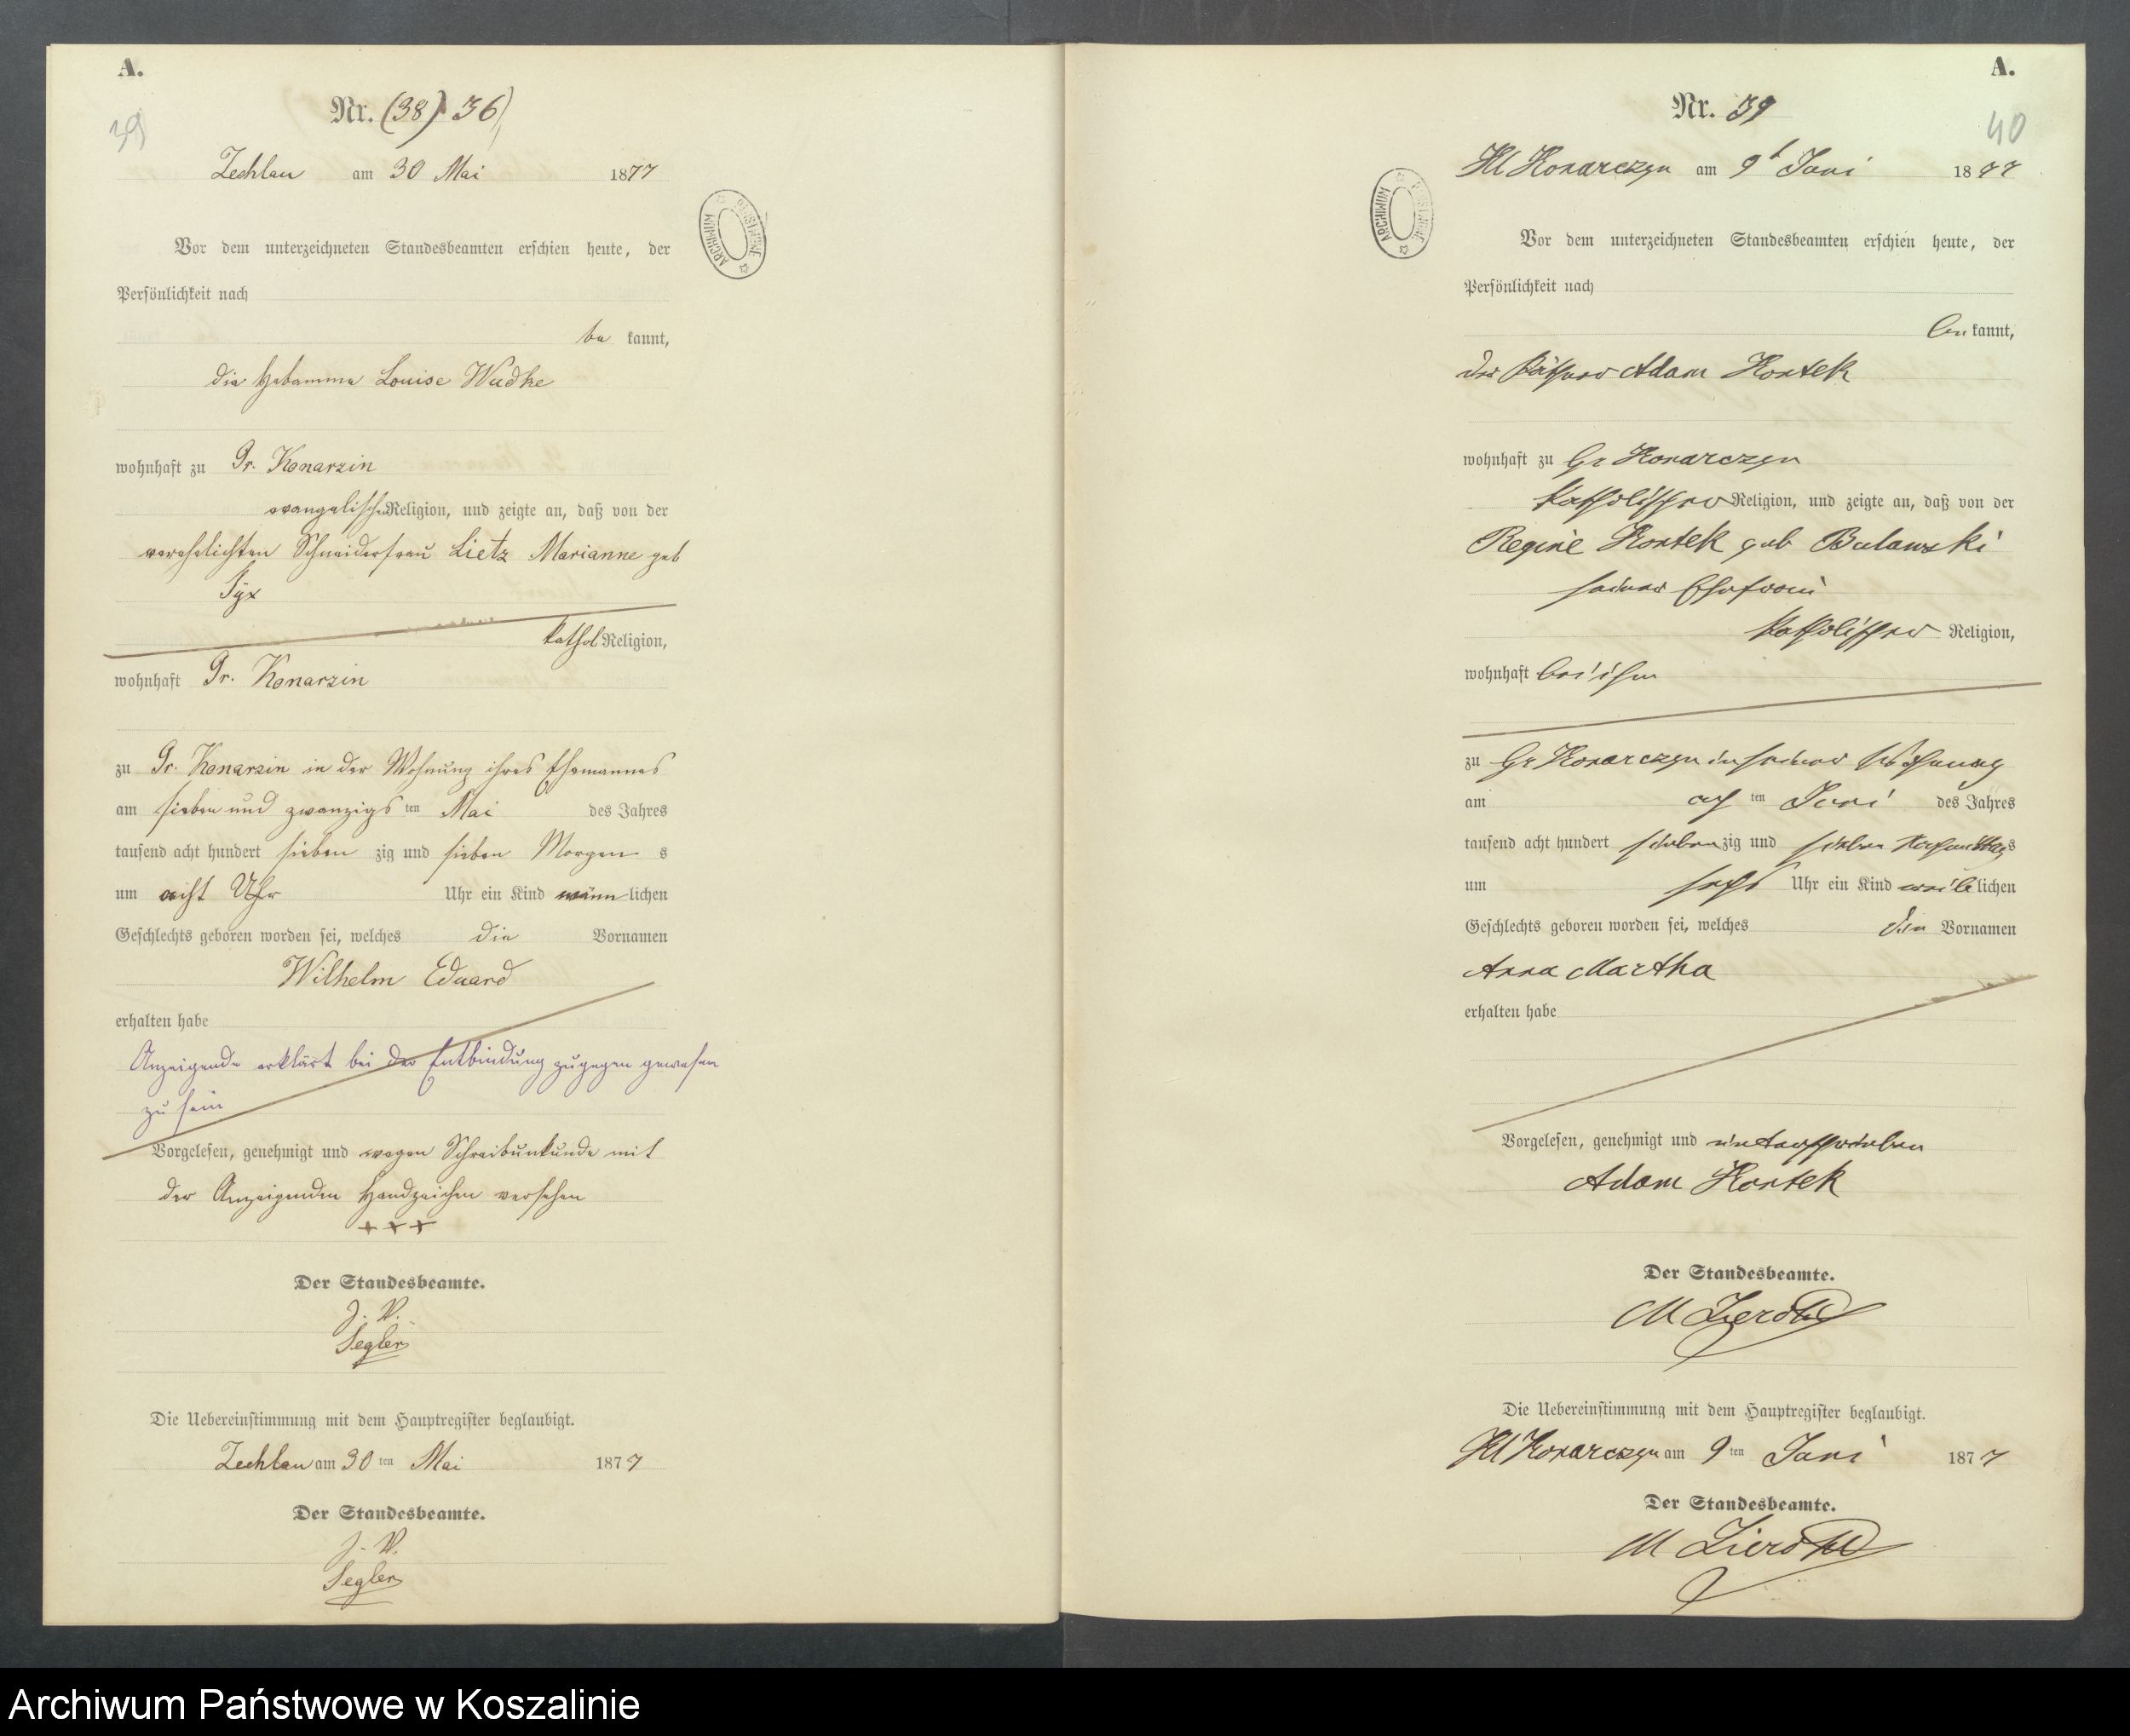 A.
39
Nr. (38) 36)
Zechlau am 30 Mai 1877
ARCHIWUM PAŃSTWOWE
Vor dem unterzeichneten Standesbeamten erschien heute, der
Persönlichkeit nach
be kannt,
die Hebamme Louise Wudke
wohnhaft zu Gr. Konarzin
evangelischer Religion, und zeigte an, daß von der
verehelichten Schneiderfrau Lietz Marianne geb
kathol Religion,
wohnhaft Gr. Konarzin
zu Gr. Konarzin in der Wohnung ihres Ehemannes
am sieben und zwanzigs ten Mai des Jahres
tausend acht hundert sieben zig und sieben Morgen s
um acht Uhr Uhr ein Kind männ lichen
Geschlechts geboren worden sei, welches die Vornamen
Wilhelm Eduard
erhalten habe
Anzeigende erklärt bei der Entbindung zugegen gewesen
zu sein
Vorgelesen, genehmigt und wegen Schreibunkunde mit
der Anzeigenden Handzeichen versehen
+++
Der Standesbeamte.
J. V.
Segler
Die Uebereinstimmung mit dem Hauptregister beglaubigt.
Zechlau am 30 ten Mai 1877
Der Standesbeamte.
J. V.
Segler
A.
40
Nr. 39
Kl Konarczyn am 9t Juni 1877
ARCHIWUM PAŃSTWOWE
Vor dem unterzeichneten Standesbeamten erschien heute, der
Persönlichkeit nach
be kannt,
der Käthner Adam Kortek
wohnhaft zu Gr Konarczyn
katholischer Religion, und zeigte an, daß von der
Regine Kortek geb
seiner Ehefrau
katholischer Religion,
wohnhaft bei ihm
zu Gr Konarczyn in seiner Wohnung
am ach ten Juni des Jahres
tausend acht hundert sieben zig und sieben Nachmittag s
um sechs Uhr ein Kind weib lichen
Geschlechts geboren worden sei, welches die Vornamen
Anna Martha
erhalten habe
Vorgelesen, genehmigt und unterschrieben
Adam Kortek
Der Standesbeamte.
M
Die Uebereinstimmung mit dem Hauptregister beglaubigt.
Kl Konarczyn am 9 ten Juni 1877
Der Standesbeamte.
M
Archiwum Państwowe w Koszalinie